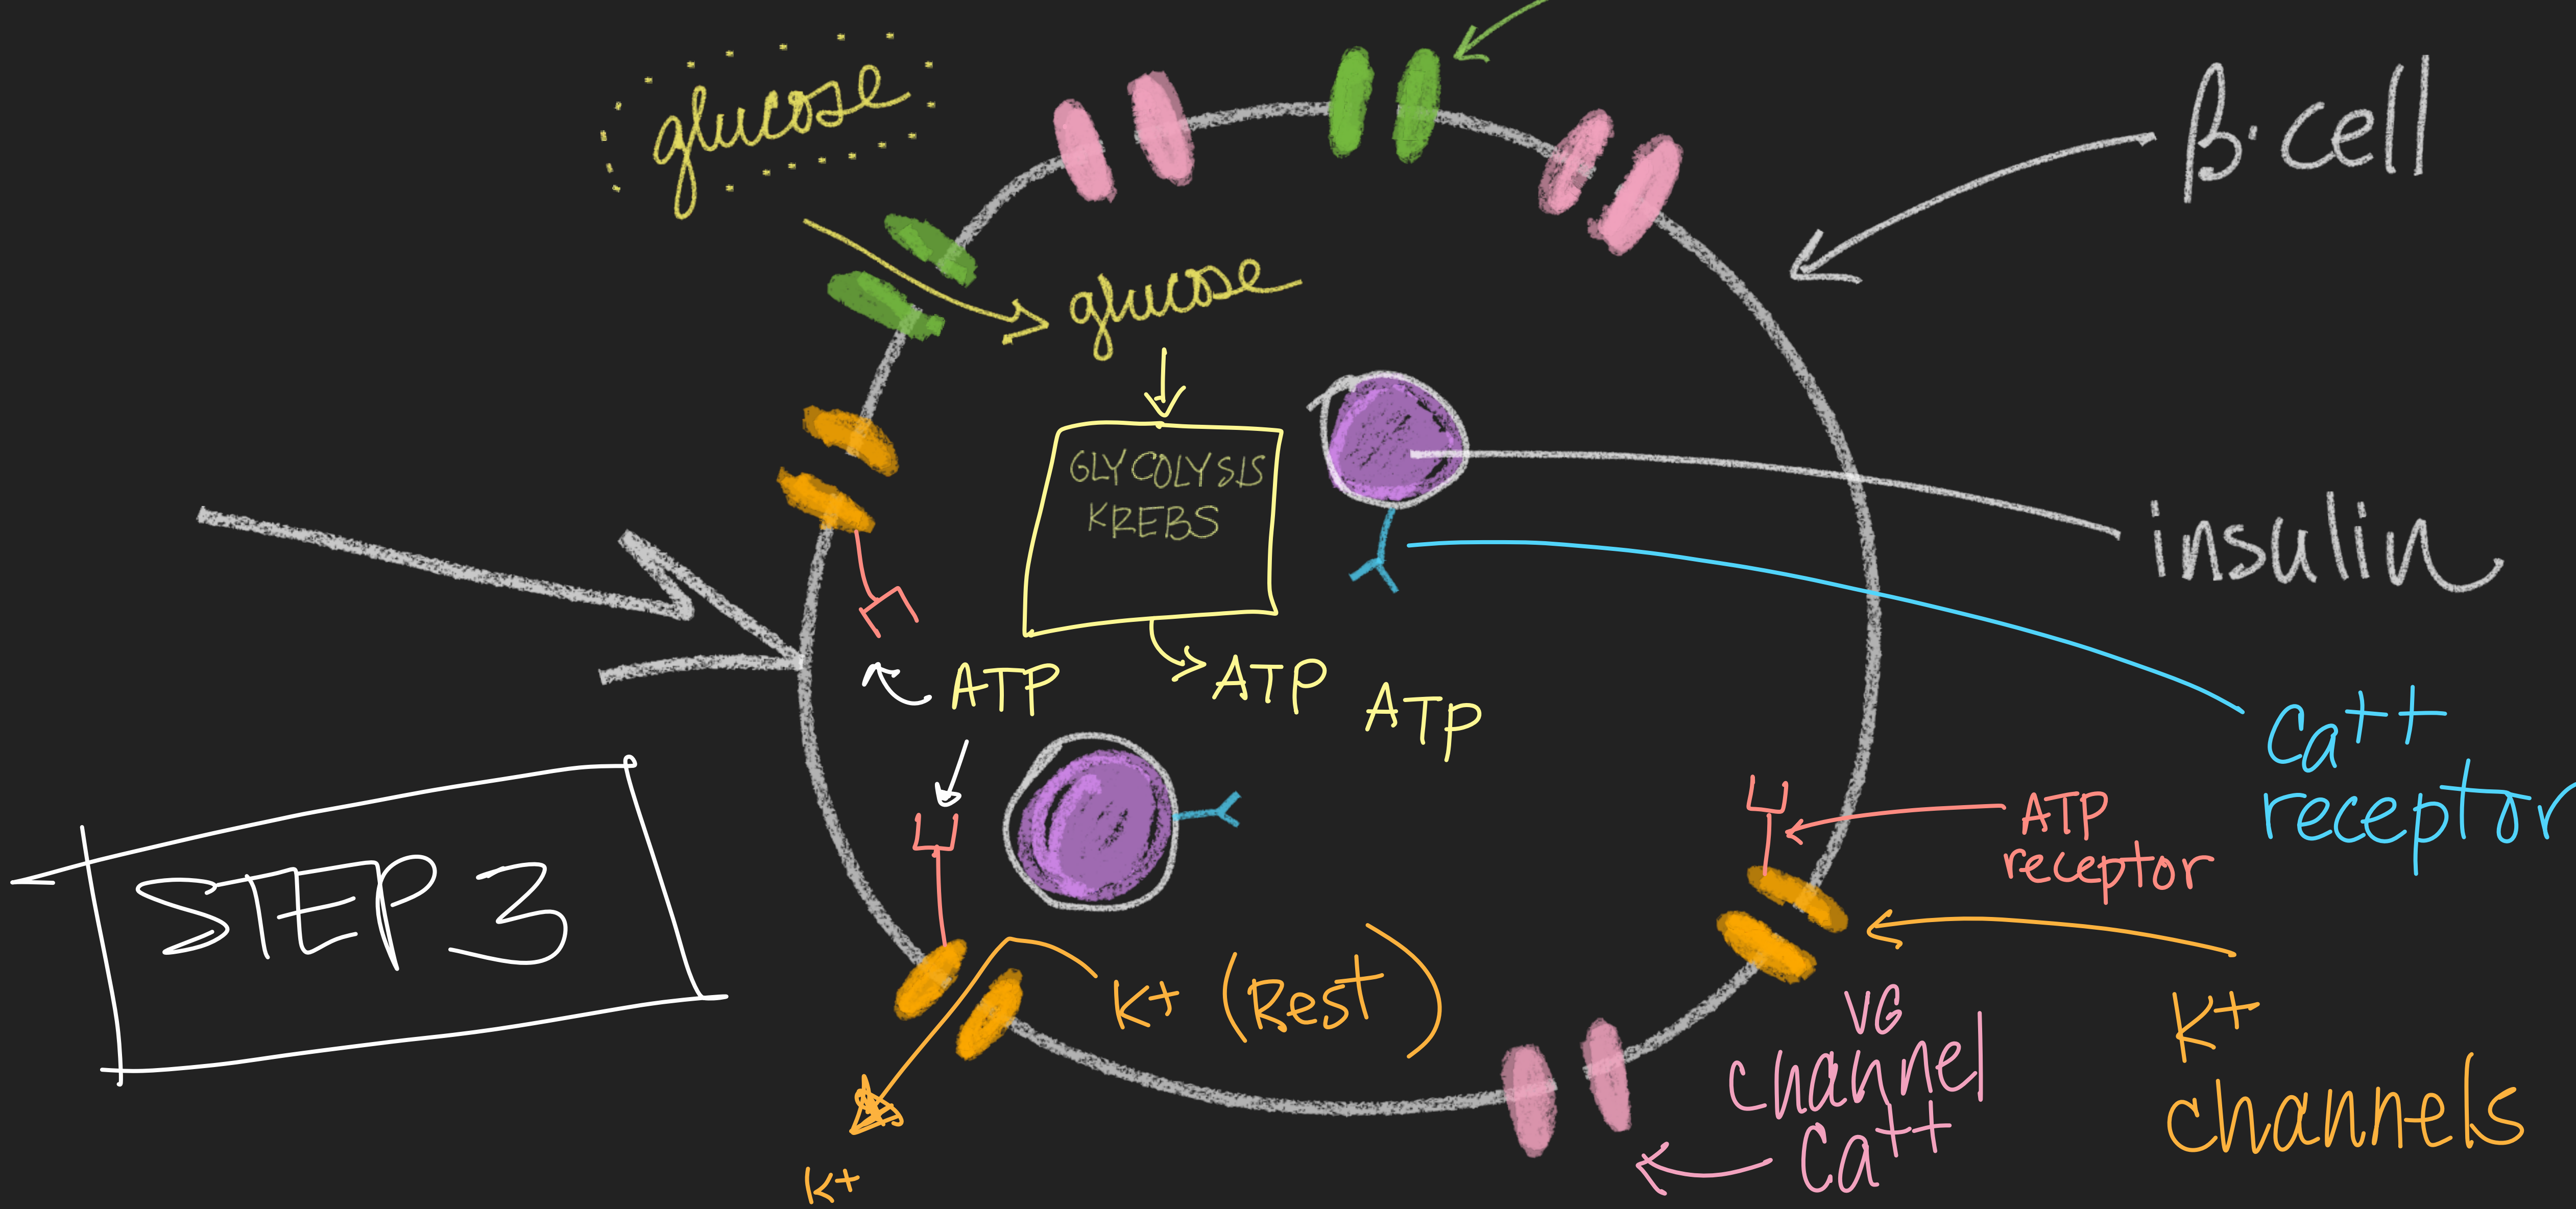 glucose
β-cell
glucose
GLYCOLYSIS
KREBS
insulin
ATP
ATP
ATP
Ca++
receptor
ATP
receptor
STEP 3
K+ (Rest)
K+
VG
channel
Ca++
K+
channels